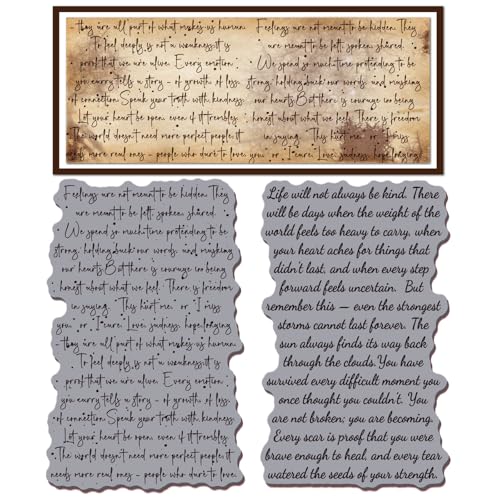 they are all part of what makes us human. Feelings are not meant to be hidden. They
To feel deeply is not a weakness it is are meant to be felt, spoken, shared.
proof that we are alive. Every emotion We spend so much time pretending to be
you carry tells a story - of growth, of loss, strong, holding back our words, and masking
of connection. Speak your truth with kindness. our hearts. But there is courage in being
Let your heart be open, even if it trembles. honest about what we feel. There is freedom
The world doesn't need more perfect people, it in saying, "This hurt me," or "I miss
needs more real ones - people who dare to love. you," or "I care. Love, sadness, hope, longing
Feelings are not meant to be hidden. They
are meant to be felt, spoken, shared.
We spend so much time pretending to be
strong, holding back our words, and masking
our hearts. But there is courage in being
honest about what we feel. There is freedom
in saying, "This hurt me," or "I miss
you," or "I care. Love, sadness, hope, longing
- they are all part of what makes us human.
To feel deeply is not a weakness it is
proof that we are alive. Every emotion
you carry tells a story - of growth, of loss,
of connection. Speak your truth with kindness.
Let your heart be open, even if it trembles.
The world doesn't need more perfect people, it
needs more real ones - people who dare to love.
Life will not always be kind. There
will be days when the weight of the
world feels too heavy to carry, when
your heart aches for things that
didn't last, and when every step
forward feels uncertain. But
remember this — even the strongest
storms cannot last forever. The
sun always finds its way back
through the clouds. You have
survived every difficult moment you
once thought you couldn't. You
are not broken; you are becoming.
Every scar is proof that you were
brave enough to heal, and every tear
watered the seeds of your strength.